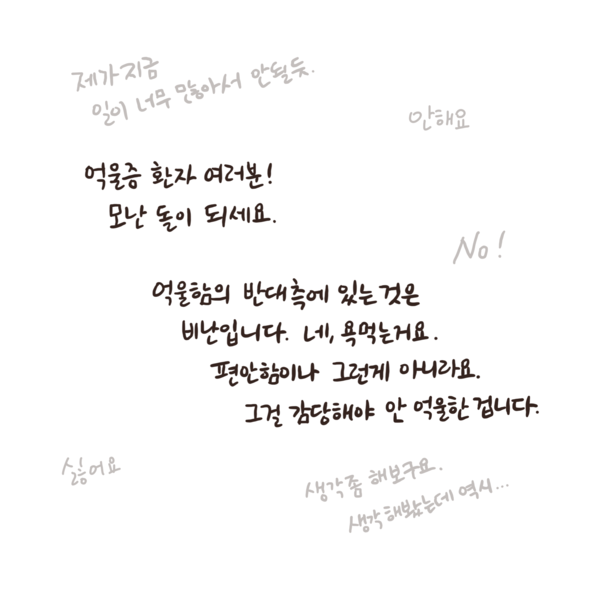 제가 지금
일이 너무 많아서 안될듯.
안해요
억울증 환자 여러분!
모난 돌이 되세요.
No!
억울함의 반대측에 있는것은
비난입니다. 네, 욕먹는거요.
편안함이나 그런게 아니라요.
그걸 감당해야 안 억울한 겁니다.
싫어요
생각좀 해보구요.
생각해봤는데 역시...